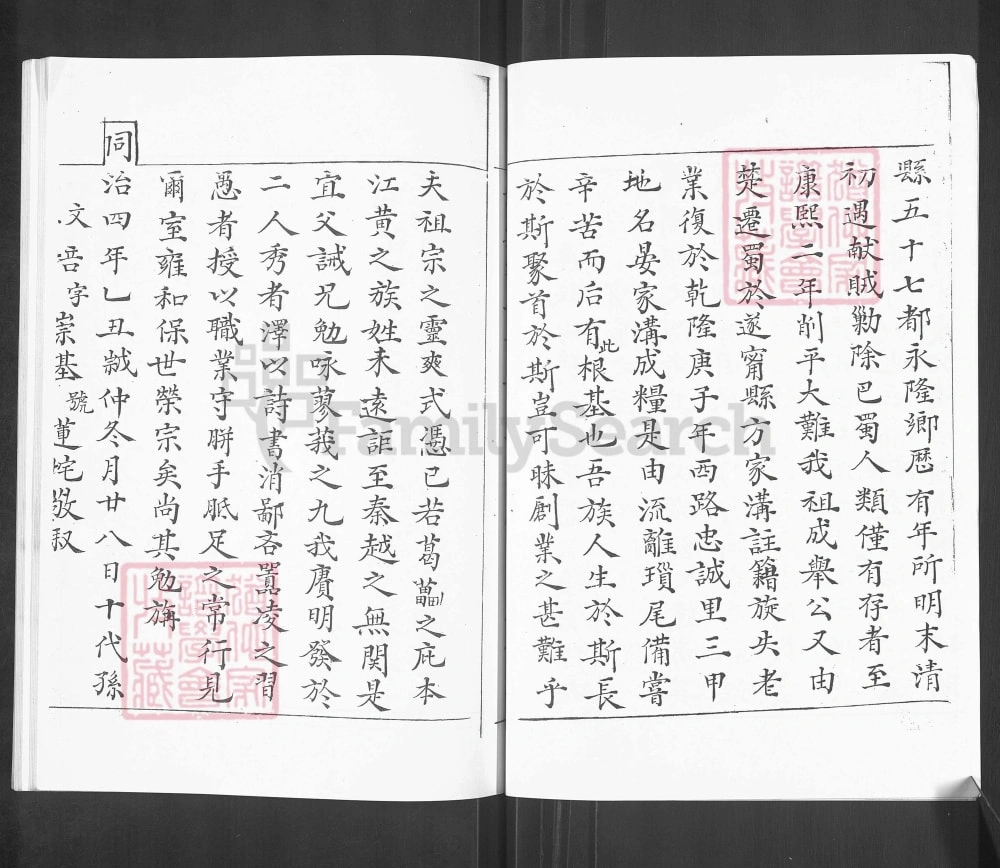 縣五十七都永隆鄉歷有年所明末清
初遇献賊勦除巴蜀人類僅有存者至
康熙二年削平大難我祖成舉公又由
楚遷蜀於遂甯縣方家溝註籍旋失老
業復於乾隆庚子年西路忠誠里三甲
地名晏家溝成糧是由流離瑣尾備嘗
辛苦而后有此根基也吾族人生於斯長
於斯聚首於斯豈可昧創業之甚難乎
夫祖宗之靈爽式憑已若葛藟之庇本
江黃之族姓未遠詎至秦越之無関是
宜父誡兄勉咏蓼莪之九我賡明發於
二人秀者澤以詩書消鄙吝囂凌之習
愚者授以職業守胼手胝足之常行見
爾室雍和保世榮宗矣尚其勉旃
同治四年乙丑嵗仲冬月廿八日十代孫
文 字崇基號 敬叙
FamilySearch